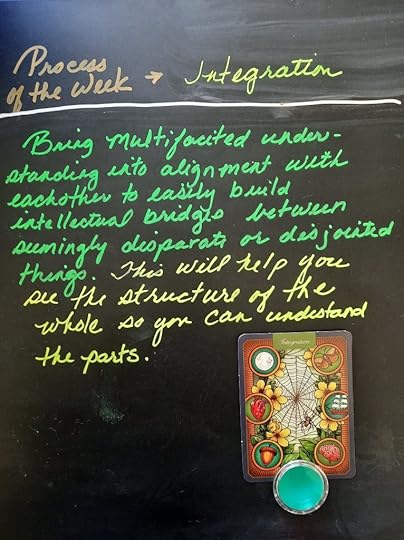 Process
of the Week → Integration
Bring Multifacited under-
standing into alignment with
eachother to easily build
intellectual bridges between
seemingly disparate or disjointed
things. This will help you
see the structure of the
whole so you can understand
the parts.
Integration